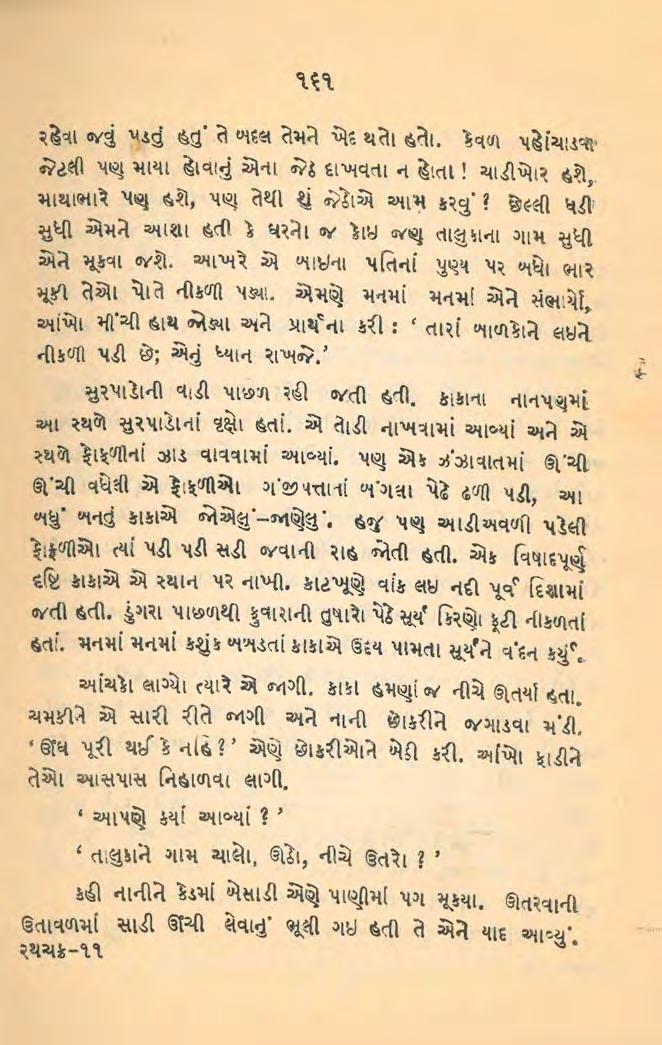 ૧૬૧
રહેવા જવું પડતું હતું તે બદલ તેમને ખેદ થતો હતો. કેવળ પહોંચાડવા
જેટલી પણ માયા હોવાનું એના જેઠ દાખવતા ન હોતા! ચાડીખોર હશે,
માથાભારે પણ હશે, પણ તેથી શું જેઠોએ આમ કરવું? છેલ્લી ઘડી
સુધી એમને આશા હતી કે ઘરનો જ કોઇ જણ તાલુકાના ગામ સુધી
એને મૂકવા જશે. આખરે એ બાઇના પતિનાં પુણ્ય પર બધો ભાર
મૂકી તેઓ પોતે નીકળી પડ્યા. એમણે મનમાં મનમાં એને સંભાર્યો,
આંખો મીંચી હાથ જોડ્યા અને પ્રાર્થના કરી : ‘ તારાં બાળકોને લઇને
નીકળી પડી છે; એનું ધ્યાન રાખજે.’
સુરપાડોની વાડી પાછળ રહી જતી હતી. કાકાના નાનપણમાં
આ સ્થળે સુરપાડોનાં વૃક્ષો હતાં. એ તોડી નાખવામાં આવ્યાં અને એ
સ્થળે ફોફળીનાં ઝાડ વાવવામાં આવ્યાં. પણ એક ઝંઝાવાતમાં ઊંચી
ઊંચી વધેલી એ ફોફળીઓ ગંજીપત્તાનાં બંગલા પેઠે ઢળી પડી, આ
બધું બનતું કાકાએ જોએલું–જાણેલું. હજુ પણ આડીઅવળી પડેલી
ફોફળીઓ ત્યાં પડી પડી સડી જવાની રાહ જોતી હતી. એક વિષાદપૂર્ણ
દૃષ્ટિ કાકાએ એ સ્થાન પર નાખી. કાટખૂણે વાંક લઇ નદી પૂર્વ દિશામાં
જતી હતી. ડુંગરા પાછળથી ફુવારાની તુષારો પેઠે સૂર્ય કિરણો ફૂટી નીકળતાં
હતાં. મનમાં મનમાં કશુંક બબડતાં કાકાએ ઉદય પામતા સૂર્યને વંદન કર્યું.
આંચકો લાગ્યો ત્યારે એ જાગી. કાકા હમણાં જ નીચે ઊતર્યા હતા.
ચમકીને એ સારી રીતે જાગી અને નાની છોકરીને જગાડવા મંડી.
‘ ઊંઘ પૂરી થઈ કે નહિ?’ એણે છોકરીઓને બેઠી કરી. આંખો ફાડીને
તેઓ આસપાસ નિહાળવા લાગી.
‘ આપણે ક્યાં આવ્યાં ? ’
‘ તાલુકાને ગામ ચાલો, ઊઠો, નીચે ઉતરો ? ’
કહી નાનીને કેડમાં બેસાડી એણે પાણીમાં પગ મૂક્યા. ઊતરવાની
ઉતાવળમાં સાડી ઊંચી લેવાનું ભૂલી ગઇ હતી તે એને યાદ આવ્યું.
રથચક્ર–૧૧